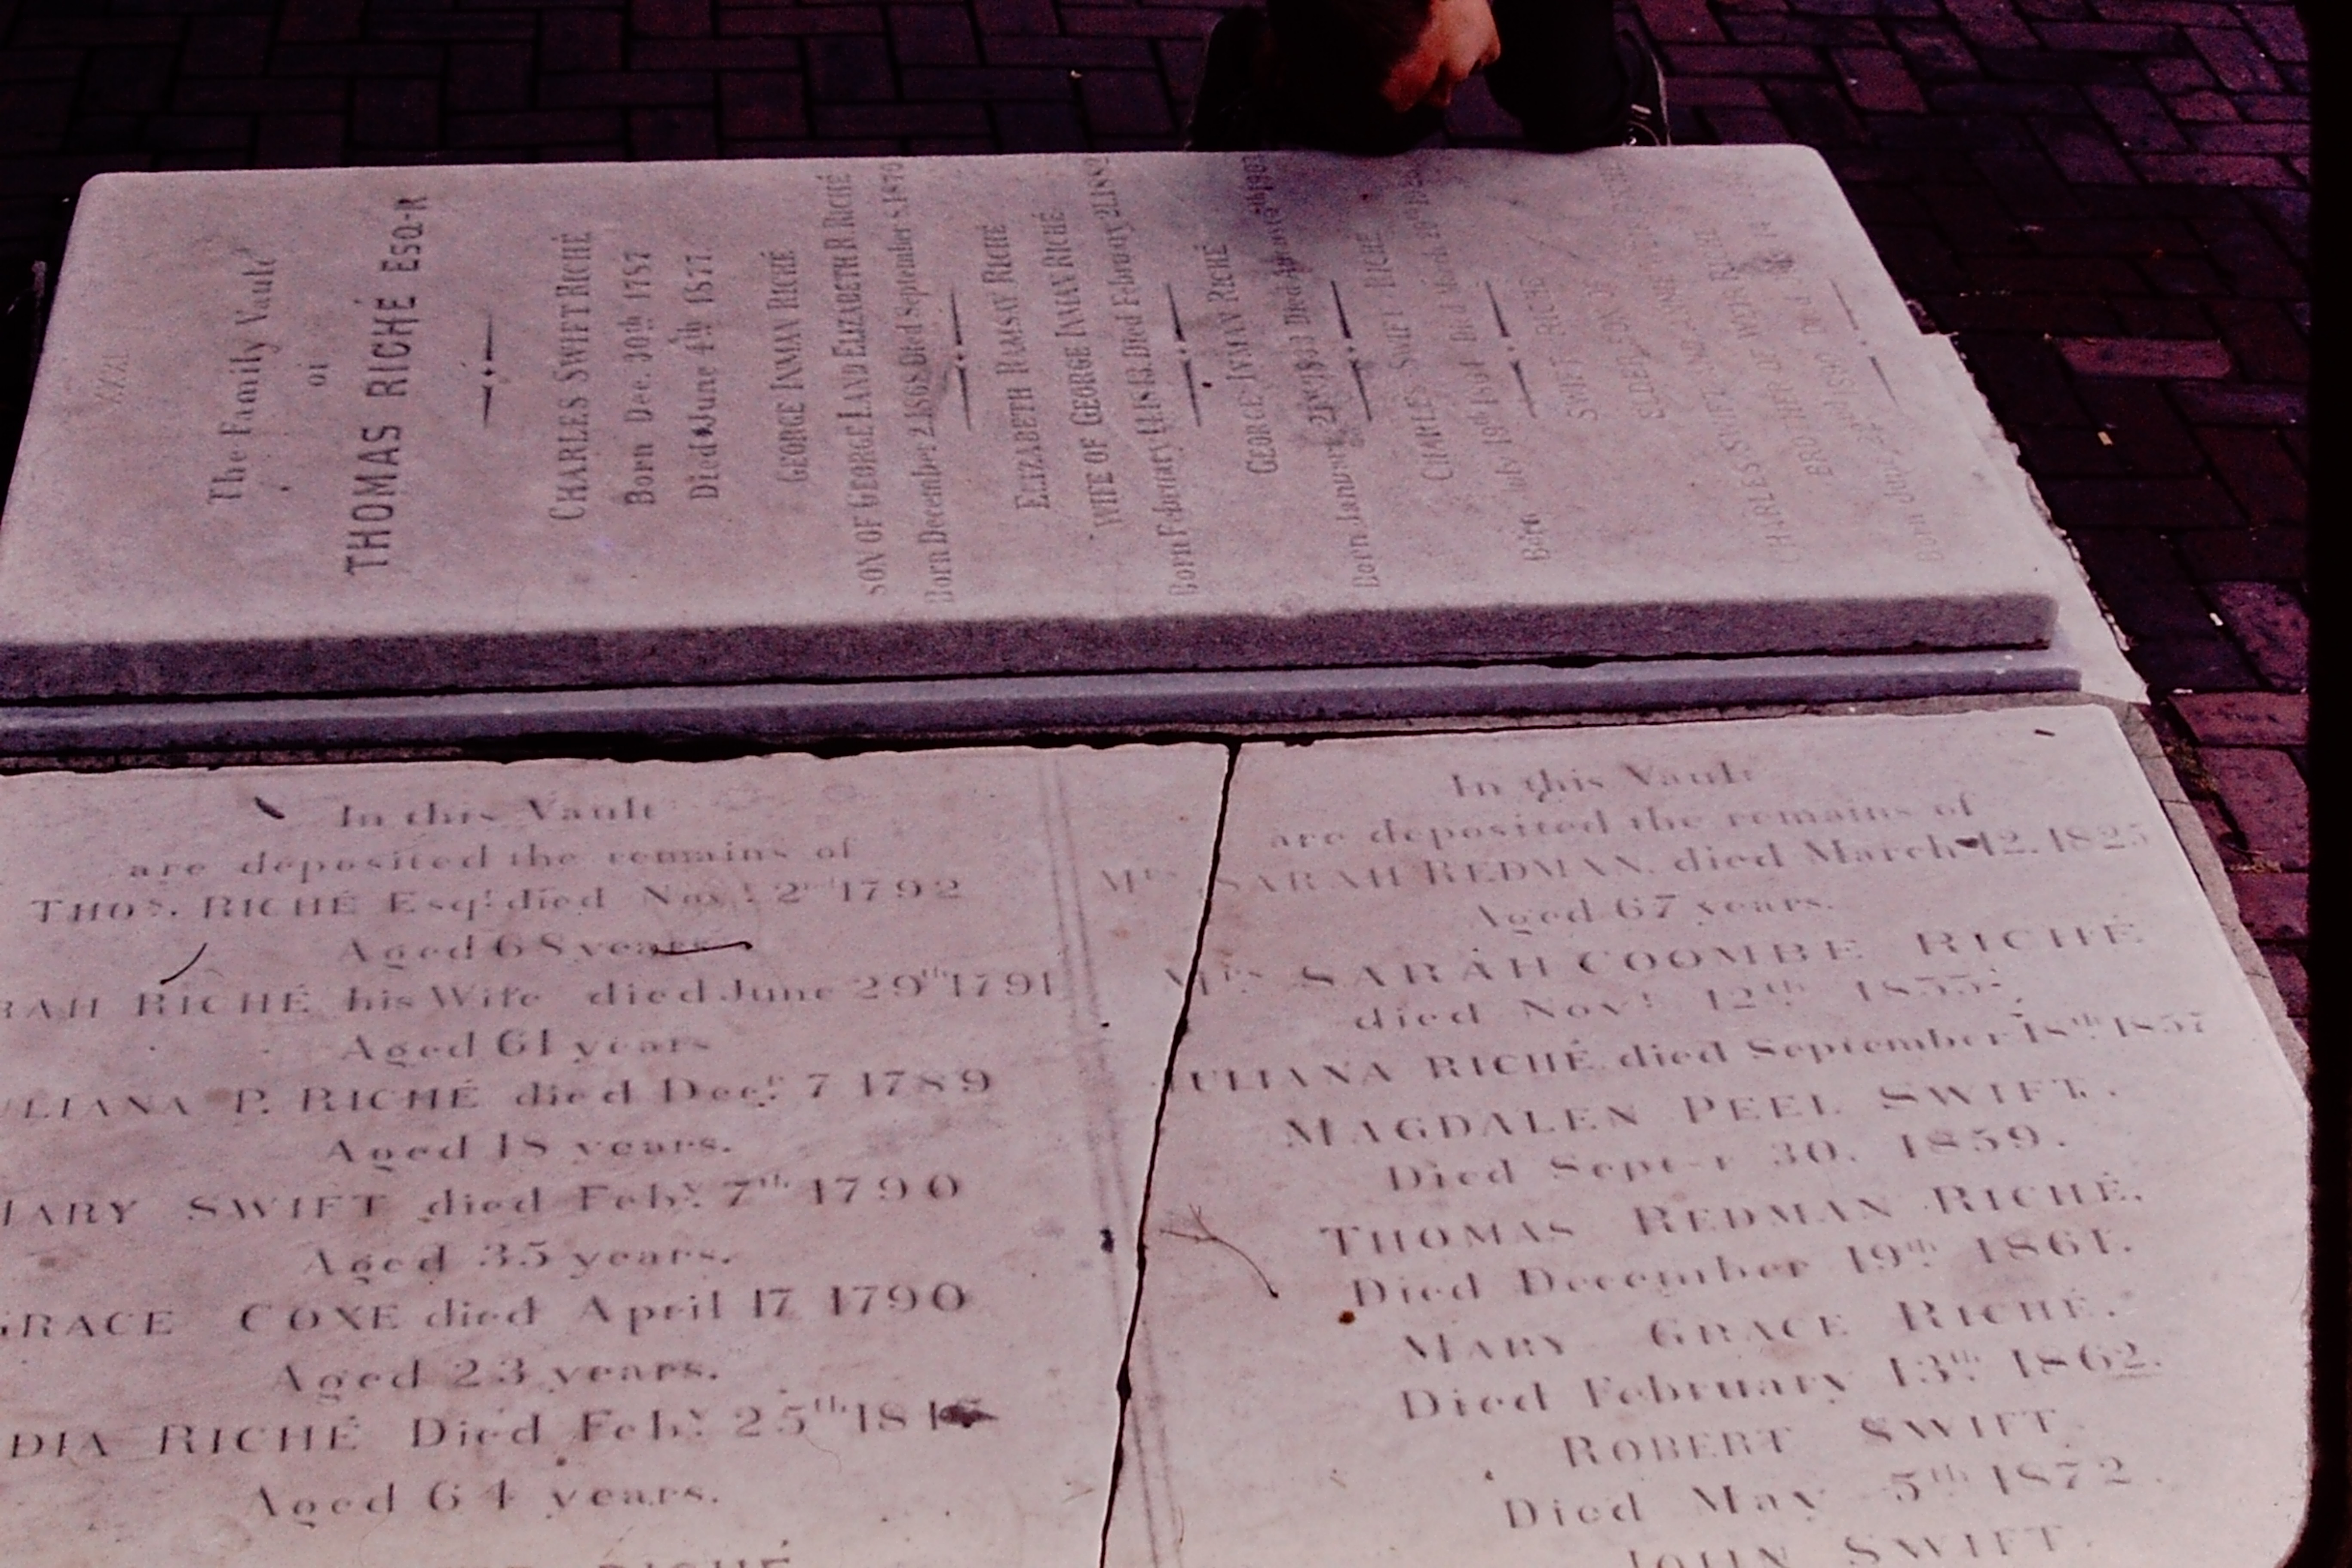 The Family Vault
of
THOMAS RICHÉ ESQ-R
CHARLES SWIFT RICHÉ
Born Dec. 30th 1787
Died June 4th 1877
GEORGE INMAN RICHÉ
SON OF GEORGE I. AND ELIZABETH R. RICHÉ
Born December 2. 1868 Died September 8. 1870
ELIZABETH RAMSAY RICHÉ
WIFE OF GEORGE INMAN RICHÉ
Born February Died February
GEORGE INMAN RICHÉ
Born January 21st 1833 Died
CHARLES SWIFT RICHÉ
Born July 19th 1861 Died March
SWIFT RICHÉ
ELDER SON OF
CHARLES SWIFT AND
BROTHER OF
Born
In this Vault
are deposited the remains of
THOS. RICHÉ Esqr. died Novr. 2nd 1792
Aged 68 years
RAH RICHÉ his Wife died June 29th 1791
Aged 61 years
ULIANA P. RICHÉ died Decr. 7 1789
Aged 18 years.
MARY SWIFT died Feby. 7th 1790
Aged 35 years.
GRACE COXE died April 17 1790
Aged 23 years.
DIA RICHÉ Died Feby. 25th
Aged 64 years.
RICHÉ
In this Vault
are deposited the remains of
Mrs. SARAH REDMAN. died March 12. 1825
Aged 67 years.
Mrs SARAH COOMBE RICHÉ
died Novr. 12th
JULIANA RICHÉ died September 18th 1857
MAGDALEN PEEL SWIFT.
Died Sept-r 30. 1859.
THOMAS REDMAN RICHÉ.
Died December 19th 1861.
MARY GRACE RICHÉ.
Died February 13th 1862.
ROBERT SWIFT.
Died May 5th 1872.
JOHN SWIFT.